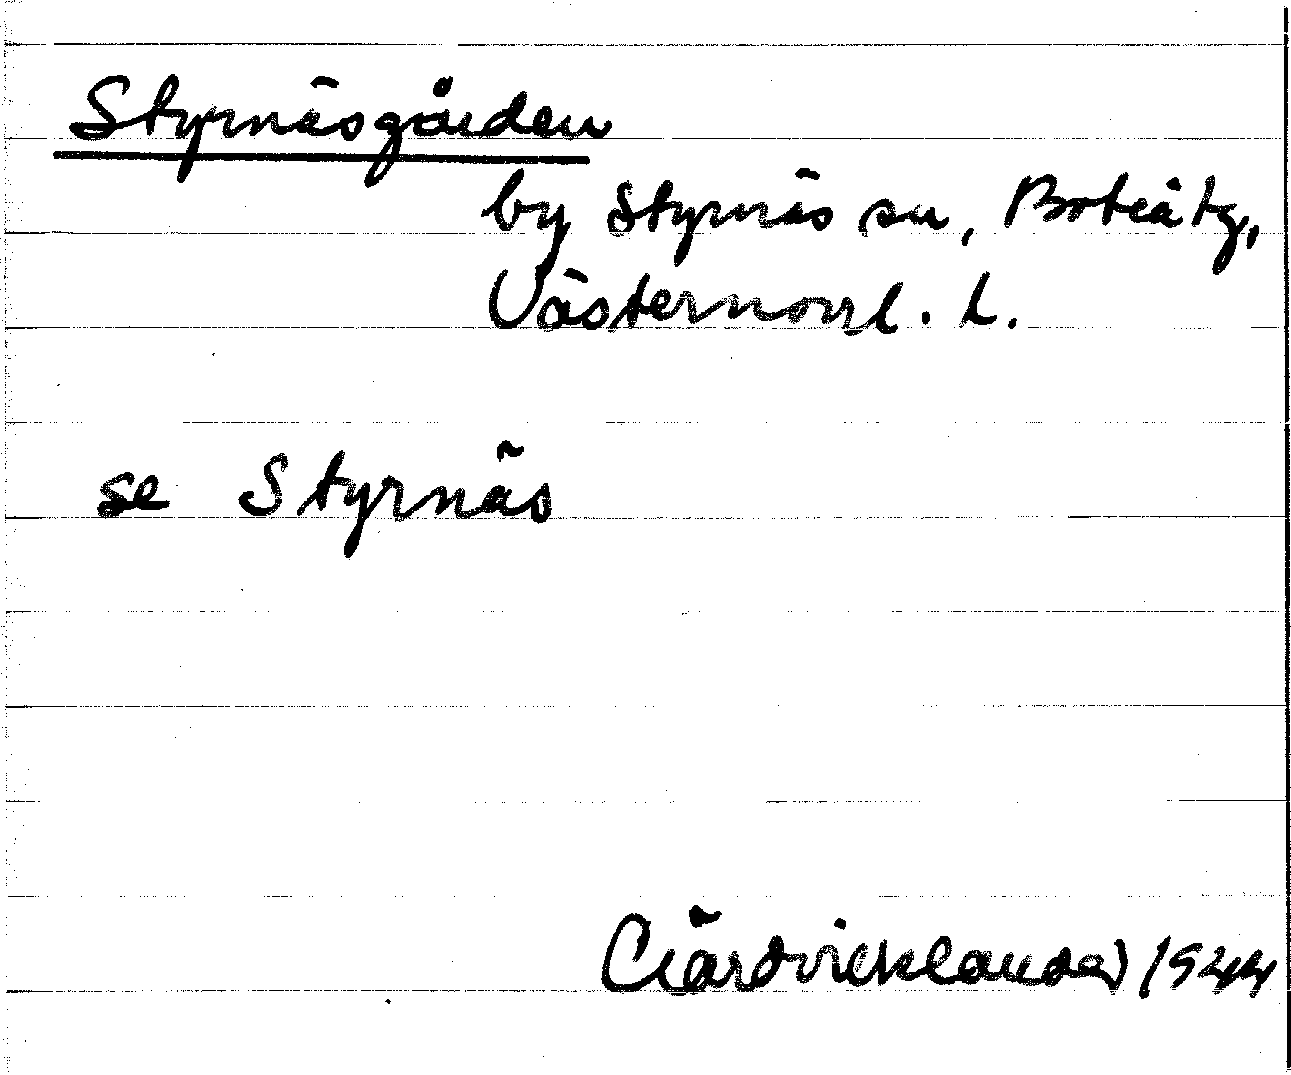 Styrnäsgården
by Styrnäs sn, Boteå tg,
Västernorrl. L.
se Styrnäs
1944